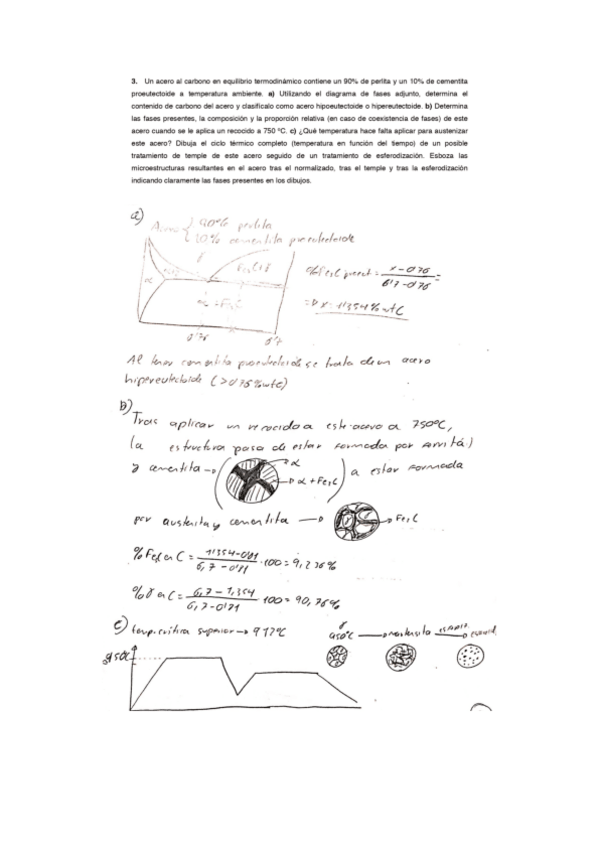 3. Un acero al carbono en equilibrio termodinámico contiene un 90% de perlita y un 10% de cementita
proeutectoide a temperatura ambiente. a) Utilizando el diagrama de fases adjunto, determina el
contenido de carbono del acero y clasifícalo como acero hipoeutectoide o hipereutectoide. b) Determina
las fases presentes, la composición y la proporción relativa (en caso de coexistencia de fases) de este
acero cuando se le aplica un recocido a 750 ºC. c) ¿Qué temperatura hace falta aplicar para austenizar
este acero? Dibuja el ciclo térmico completo (temperatura en función del tiempo) de un posible
tratamiento de temple de este acero seguido de un tratamiento de esferodización. Esboza las
microestructuras resultantes en el acero tras el normalizado, tras el temple y tras la esferodización
indicando claramente las fases presentes en los dibujos.
a)
Acero { 90% perlita
10% cementita proeutectoide
γ
Fe3C+γ
α
α + Fe3C
0'76
6'7
%Fe3C proeut = x - 0'76 / 6'7 - 0'76 =
=> x = 1'354 % wt C
Al tener cementita proeutectoide se trata de un acero
hipereutectoide (>0'75%wtc)
b)
Tras aplicar un recocido a este acero a 750ºC,
la estructura pasa de estar formada por
y cementita → ( α
α + Fe3C ) a estar formada
por austenita y cementita → Fe3C
%Fe3C en C = 1'354-0'81 / 6,7 - 0'81 · 100 = 9,236%
%γ en C = 6,7 - 1,354 / 6,7 - 0'81 · 100 = 90,76%
c) temp. crítica superior → 917ºC
γ
950ºC → martensita →
950ºC